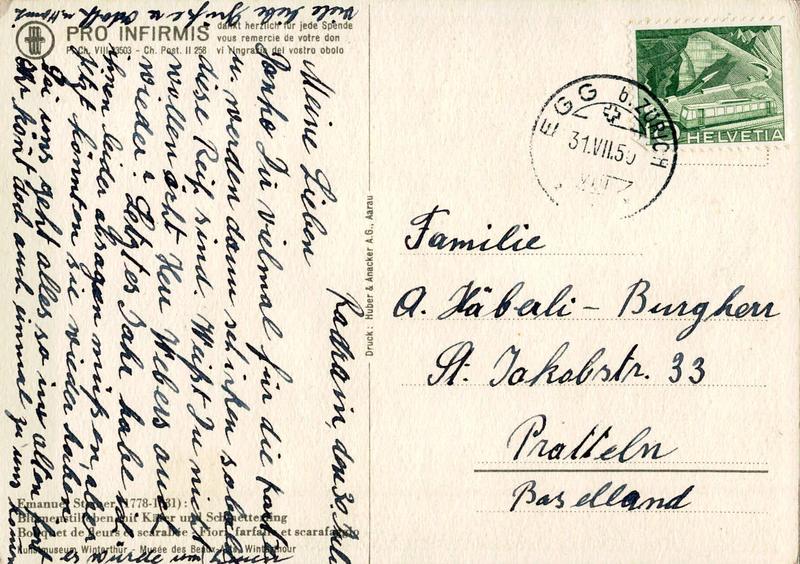 PRO INFIRMIS
P. Ch. VIII 23503 - Ch. Post. II 258
dankt herzlich für jede Spende
vous remercie de votre don
vi ringrazia del vostro obolo
Radrain, den 30. Juli
Meine Lieben
Danke Dir vielmal für die
u. werden dann schicken sobald
diese Reif sind. Weißt Du nicht
wollen acht Herr Webers auch
wieder? Letztes Jahr habe ich
ihnen leider absagen müssen, aber
jetzt könnten Sie wieder haben.
Bei uns geht alles so im alten fort
Ihr könnt doch auch einmal zu uns kommen
es würde uns freuen
Viele liebe Grüße
Emanuel Steiner (1778-1831):
Blumenstilleben mit Käfer und Schmetterling
Bouquet de fleurs et scarabée - Fiori, farfalle et scarafaggio
Kunstmuseum Winterthur - Musée des Beaux-Arts Winterthour
Druck: Huber & Anacker A.G., Aarau
HELVETIA
EGG b. ZÜRICH
31.VII.50
Familie
A. Häberli - Burgherr
St. Jakobstr. 33
Pratteln
Baselland